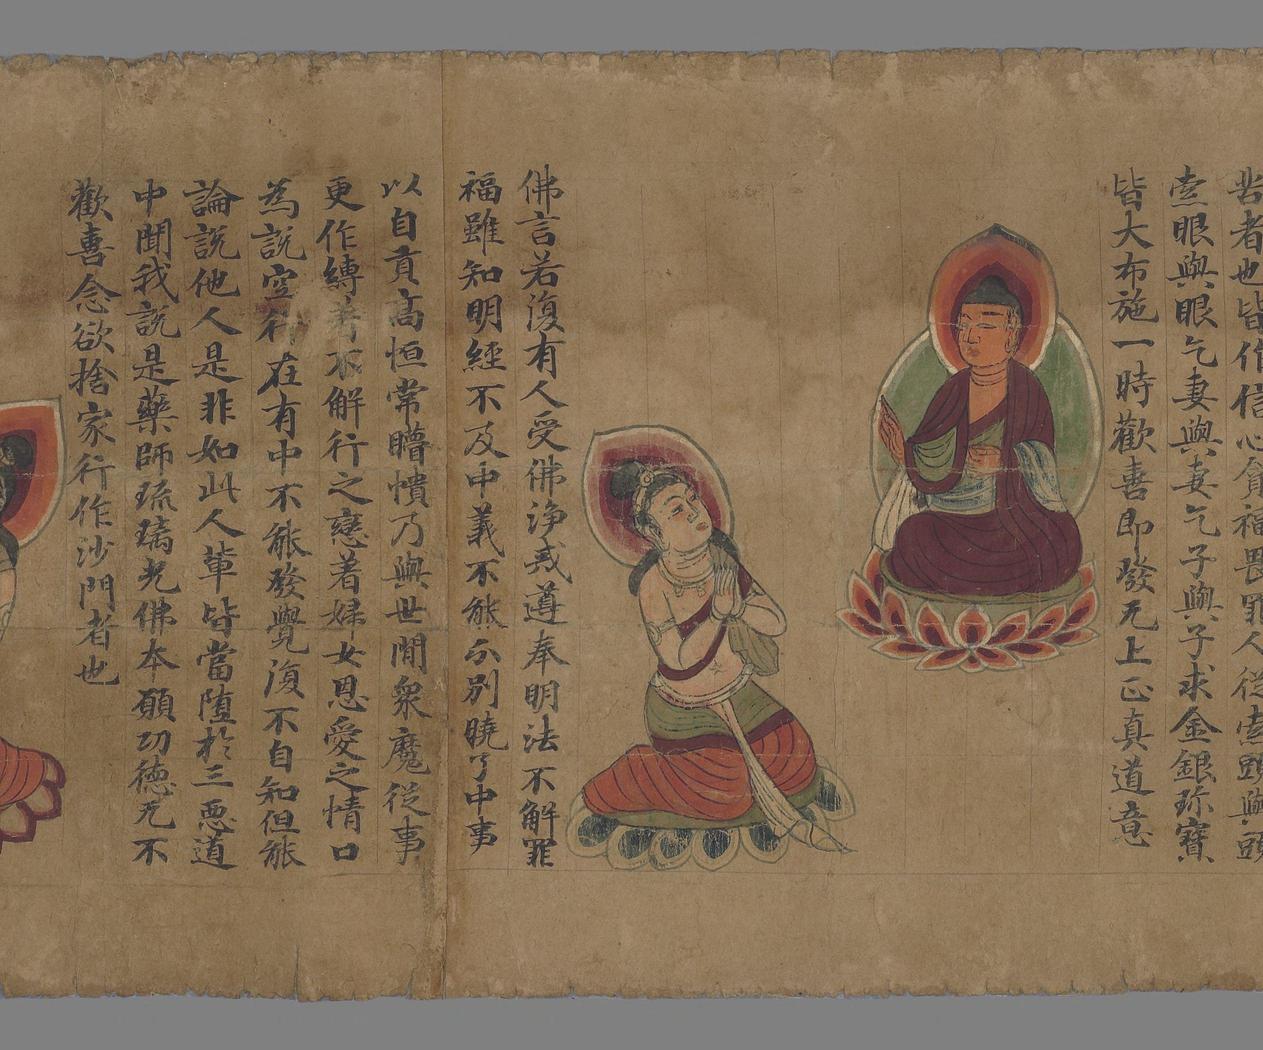 苦者也皆作信心貪福畏罪人從索頭與頭
索眼與眼乞妻與妻乞子與子求金銀珎寶
皆大布施一時歡善即發无上正真道意
佛言若復有人受佛淨戒遵奉明法不解罪
福雖知明經不及中義不能分別曉了中事
以自貢高恒常瞢憒乃與世間衆魔從事
更作縛著不解行之戀著婦女恩愛之情口
為說空行在有中不能發覺復不自知但能
論說他人是非如此人輩皆當墮於三惡道
中聞我說是藥師琉璃光佛本願功德无不
歡喜念欲捨家行作沙門者也